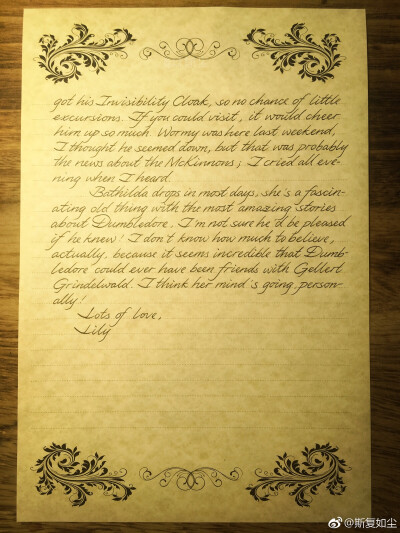 got his Invisibility Cloak, so no chance of little
excursions. If you could visit, it would cheer
him up so much. Wormy was here last weekend,
I thought he seemed down, but that was probably
the news about the McKinnons; I cried all eve-
ning when I heard.
Bathilda drops in most days, she's a fascin-
ating old thing with the most amazing stories
about Dumbledore. I'm not sure he'd be pleased
if he knew! I don't know how much to believe,
actually, because it seems incredible that Dumb-
ledore could ever have been friends with Gellert
Grindelwald. I think her mind's going, person-
ally!
Lots of love,
Lily
@斯复如尘